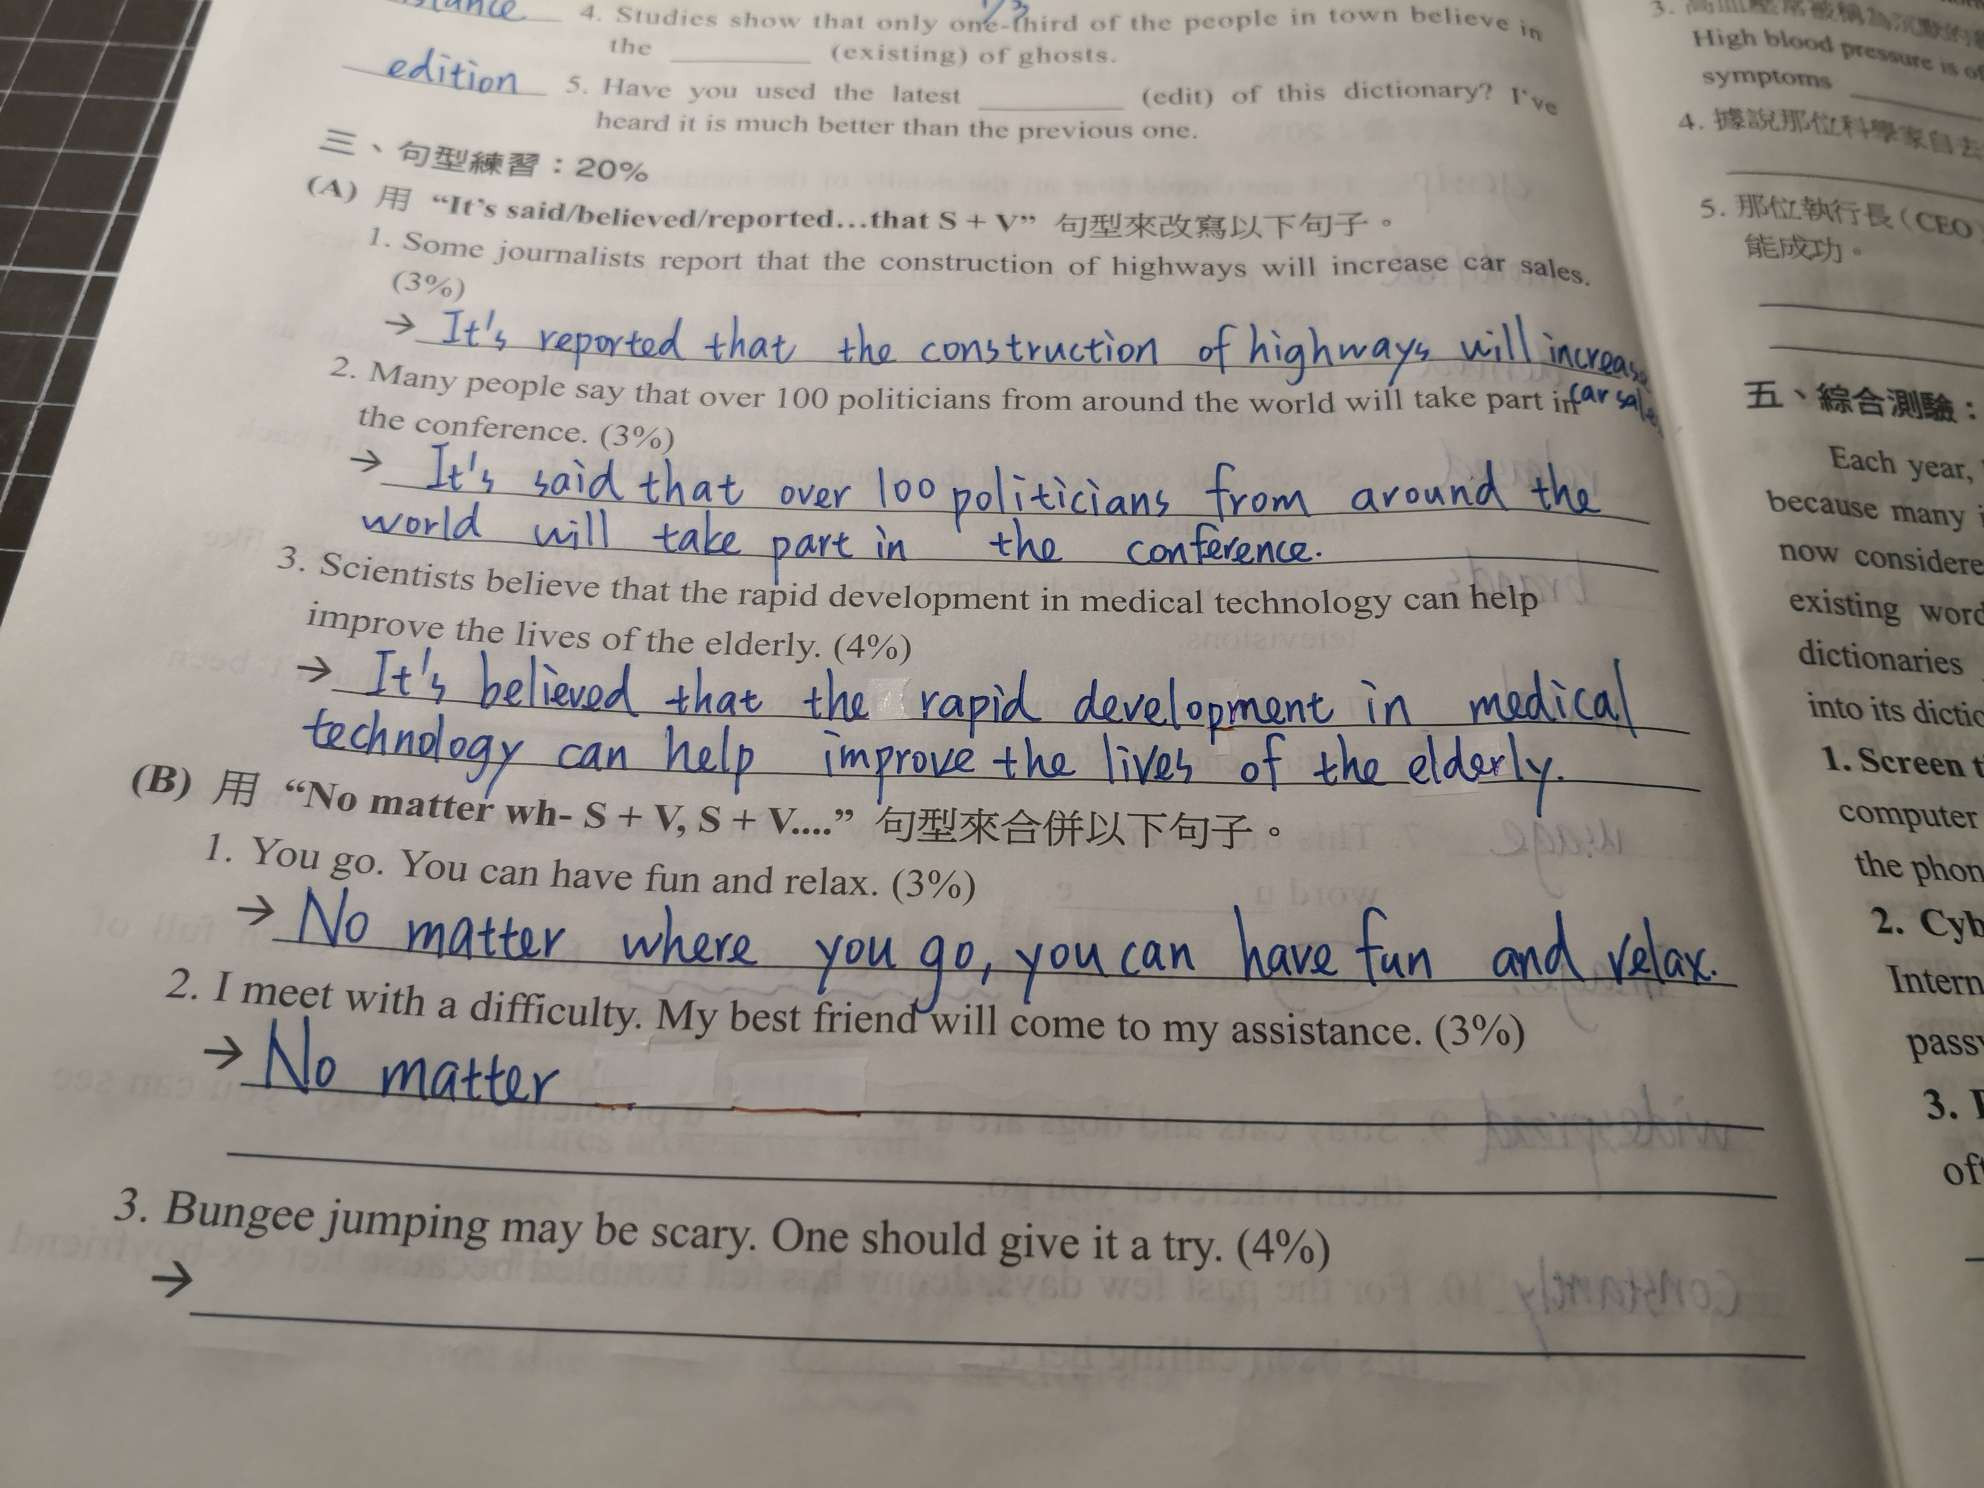 4. Studies show that only one-third of the people in town believe in
1/3
the ________ (existing) of ghosts.
edition 5. Have you used the latest ________ (edit) of this dictionary? I've
heard it is much better than the previous one.
三、句型練習：20%
(A) 用 “It's said/believed/reported…that S + V” 句型來改寫以下句子。
1. Some journalists report that the construction of highways will increase car sales.
(3%)
→ It's reported that the construction of highways will increase
car sales
2. Many people say that over 100 politicians from around the world will take part in
the conference. (3%)
→ It's said that over 100 politicians from around the
world will take part in the conference.
3. Scientists believe that the rapid development in medical technology can help
improve the lives of the elderly. (4%)
→ It's believed that the rapid development in medical
technology can help improve the lives of the elderly.
(B) 用 “No matter wh- S + V, S + V....” 句型來合併以下句子。
1. You go. You can have fun and relax. (3%)
→ No matter where you go, you can have fun and relax.
2. I meet with a difficulty. My best friend will come to my assistance. (3%)
→ No matter
3. Bungee jumping may be scary. One should give it a try. (4%)
→
3.
High blood pressure is
symptoms
4. 據說那位科學家自去
5. 那位執行長（CEO）
能成功。
五、綜合測驗：
Each year,
because many
now considere
existing word
dictionaries
into its dictio
1. Screen t
computer
the phon
2. Cyb
Intern
passw
3.
oft